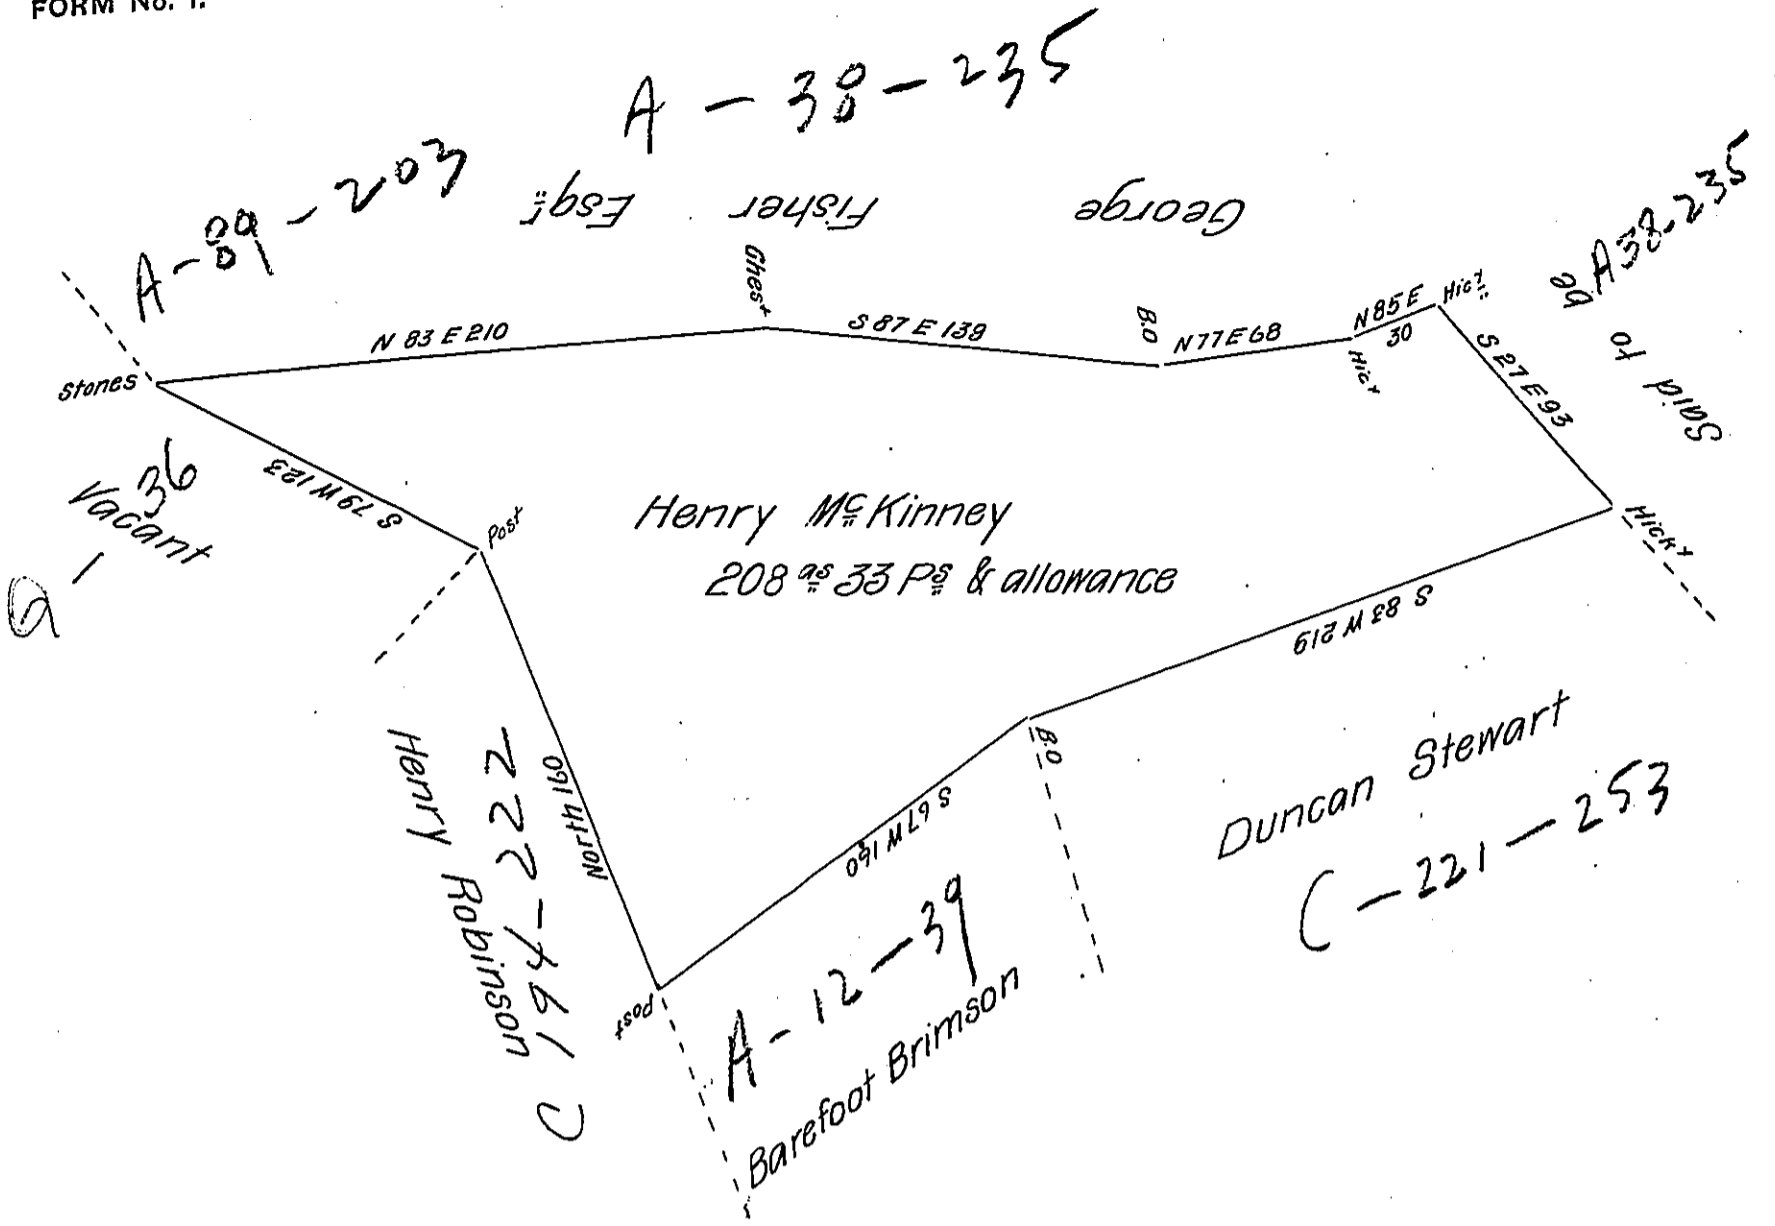 FORM No. 1.
A - 38 - 235
A - 89 - 203
George Fisher Esqr.
Said to be
A38-235
Stones
N 83 E 210
Chest
S 87 E 139
B.O
N77E68
Hicy
N85E
30
Hicy
S 27 E 93
Hicky
Vacant
36
S 79 W 123
Post
Henry McKinney
208 as 33 Ps & allowance
S 83 W 219
B.O
S 67 W 160
North 160
Post
Henry Robinson
C 194-222
A-12-39
Barefoot Brimson
Duncan Stewart
C-221-253